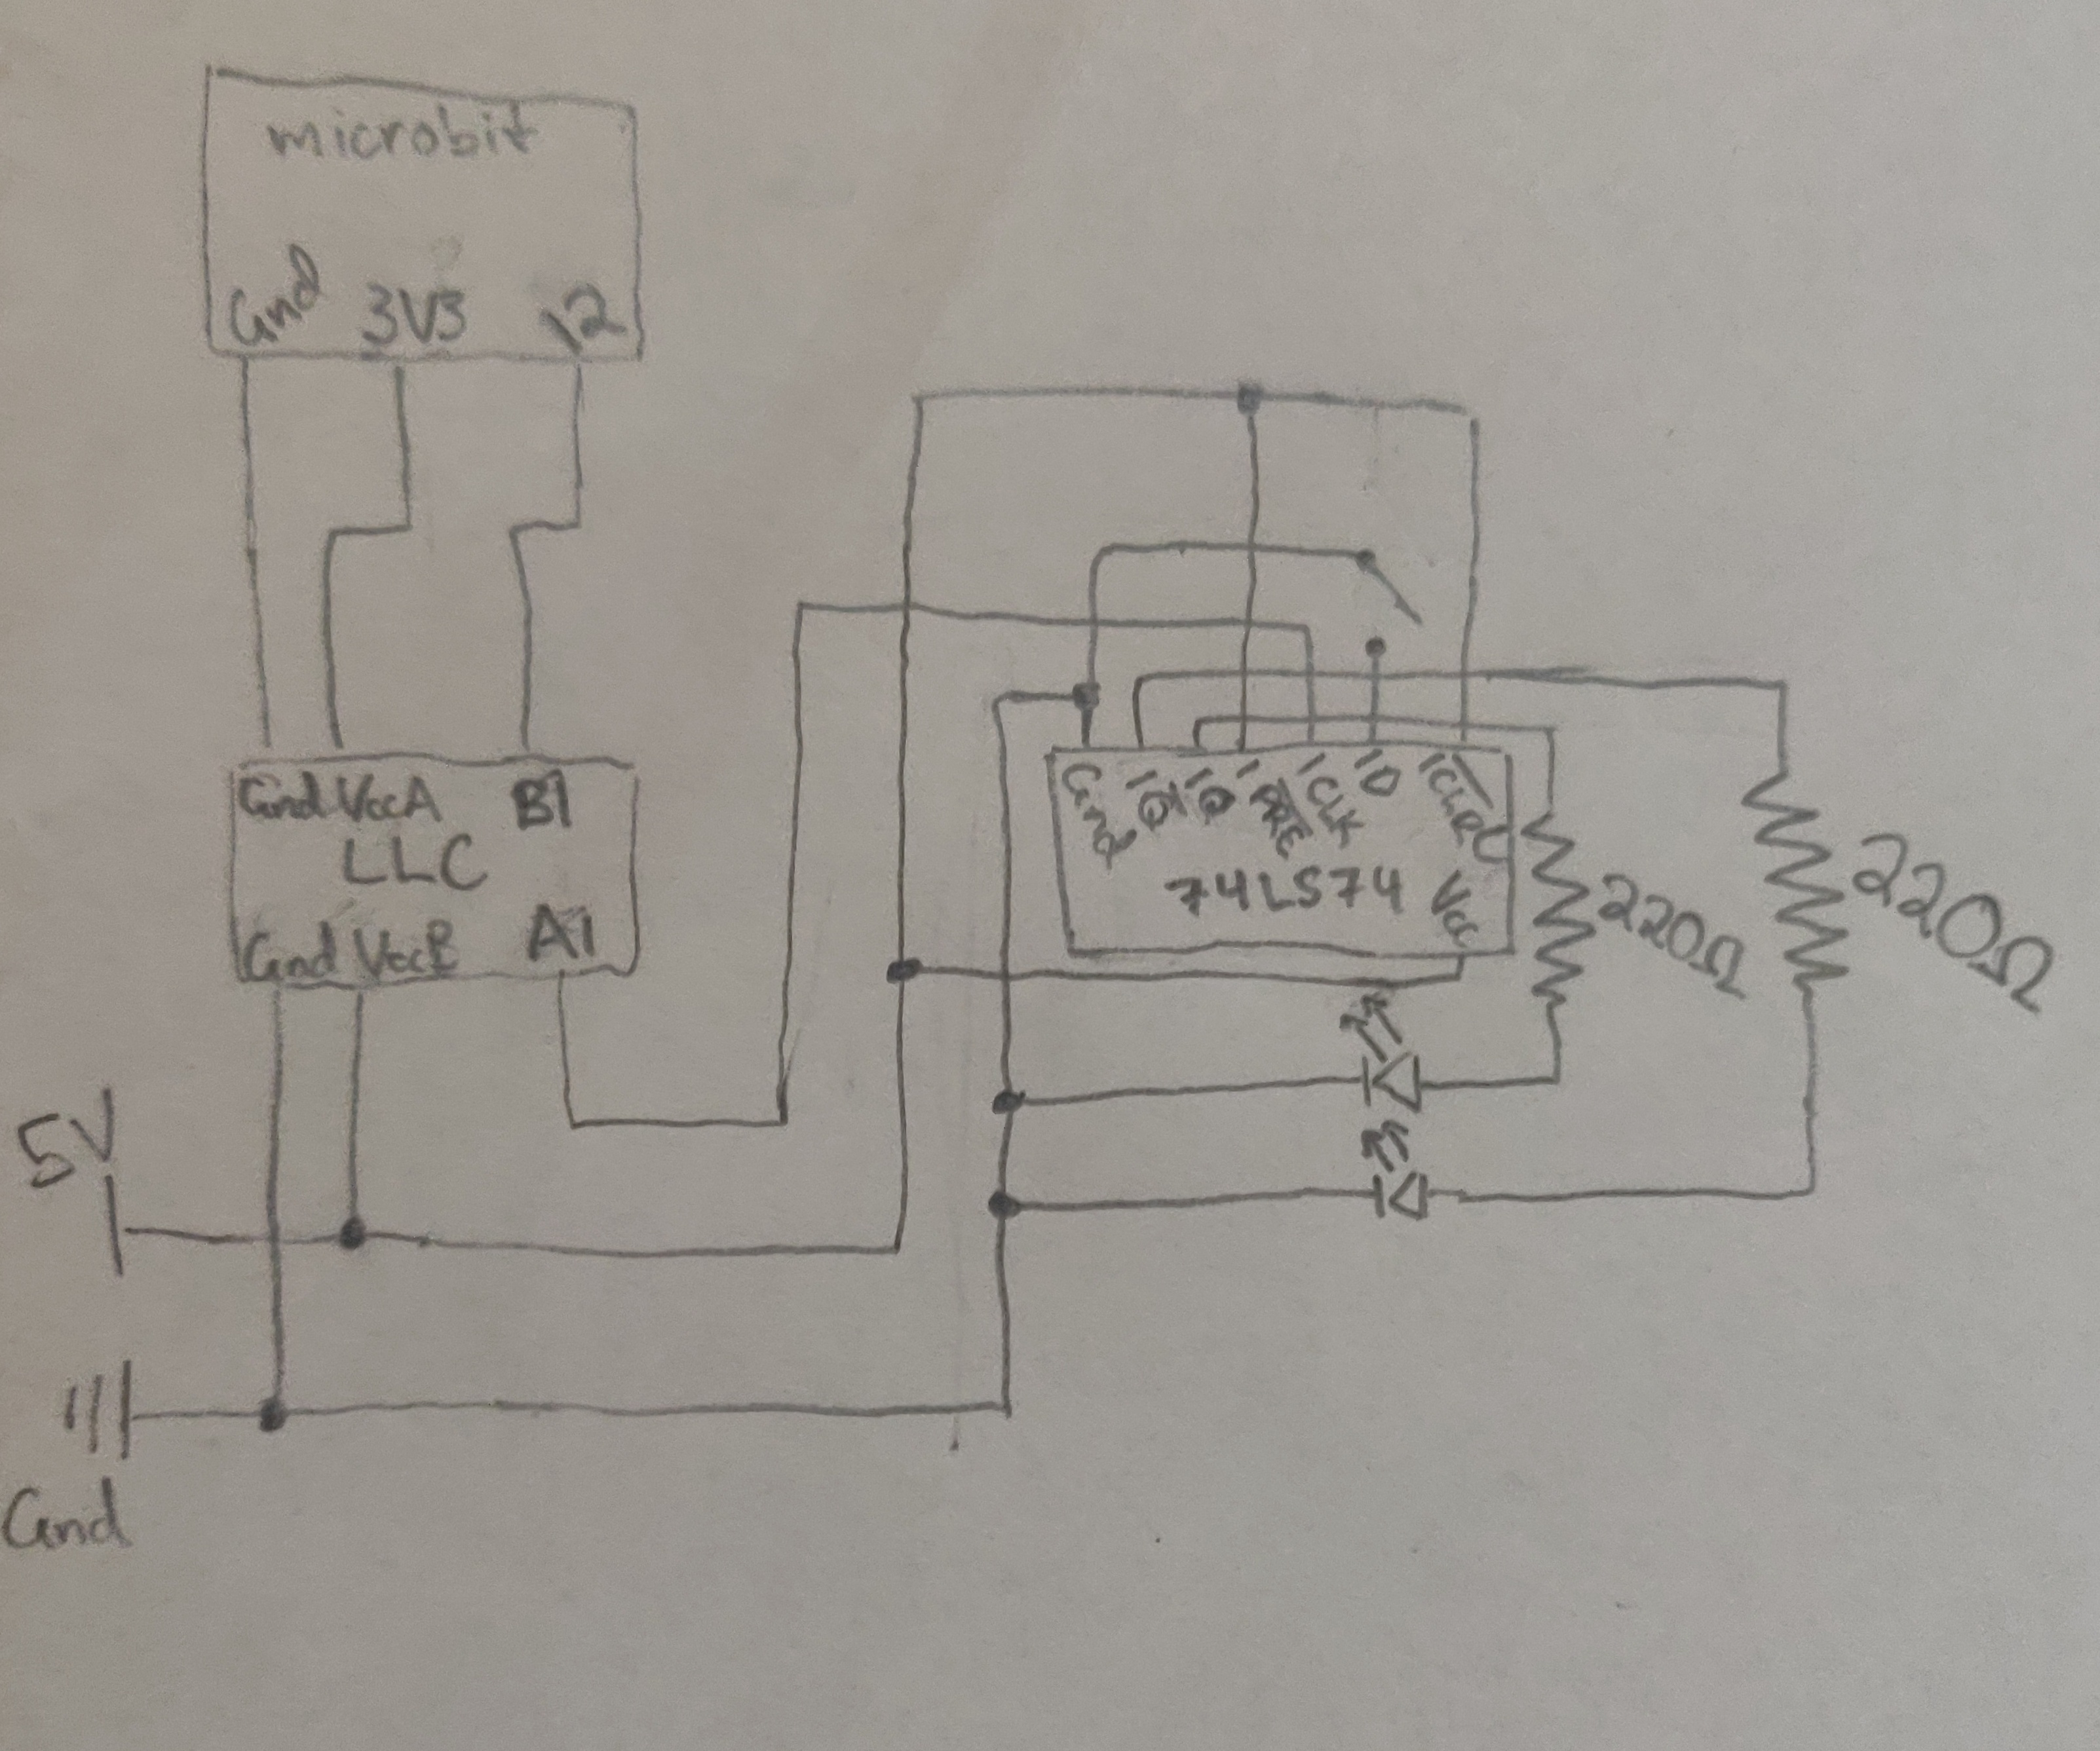 microbit
Gnd 3V3 12
Gnd VccA B1
LLC
Gnd VccB A1
Gnd 1Q̅ 1Q 1P̅R̅E̅ 1CLK 1D 1C̅L̅R̅
74LS74 Vcc
220Ω
220Ω
5V
Gnd